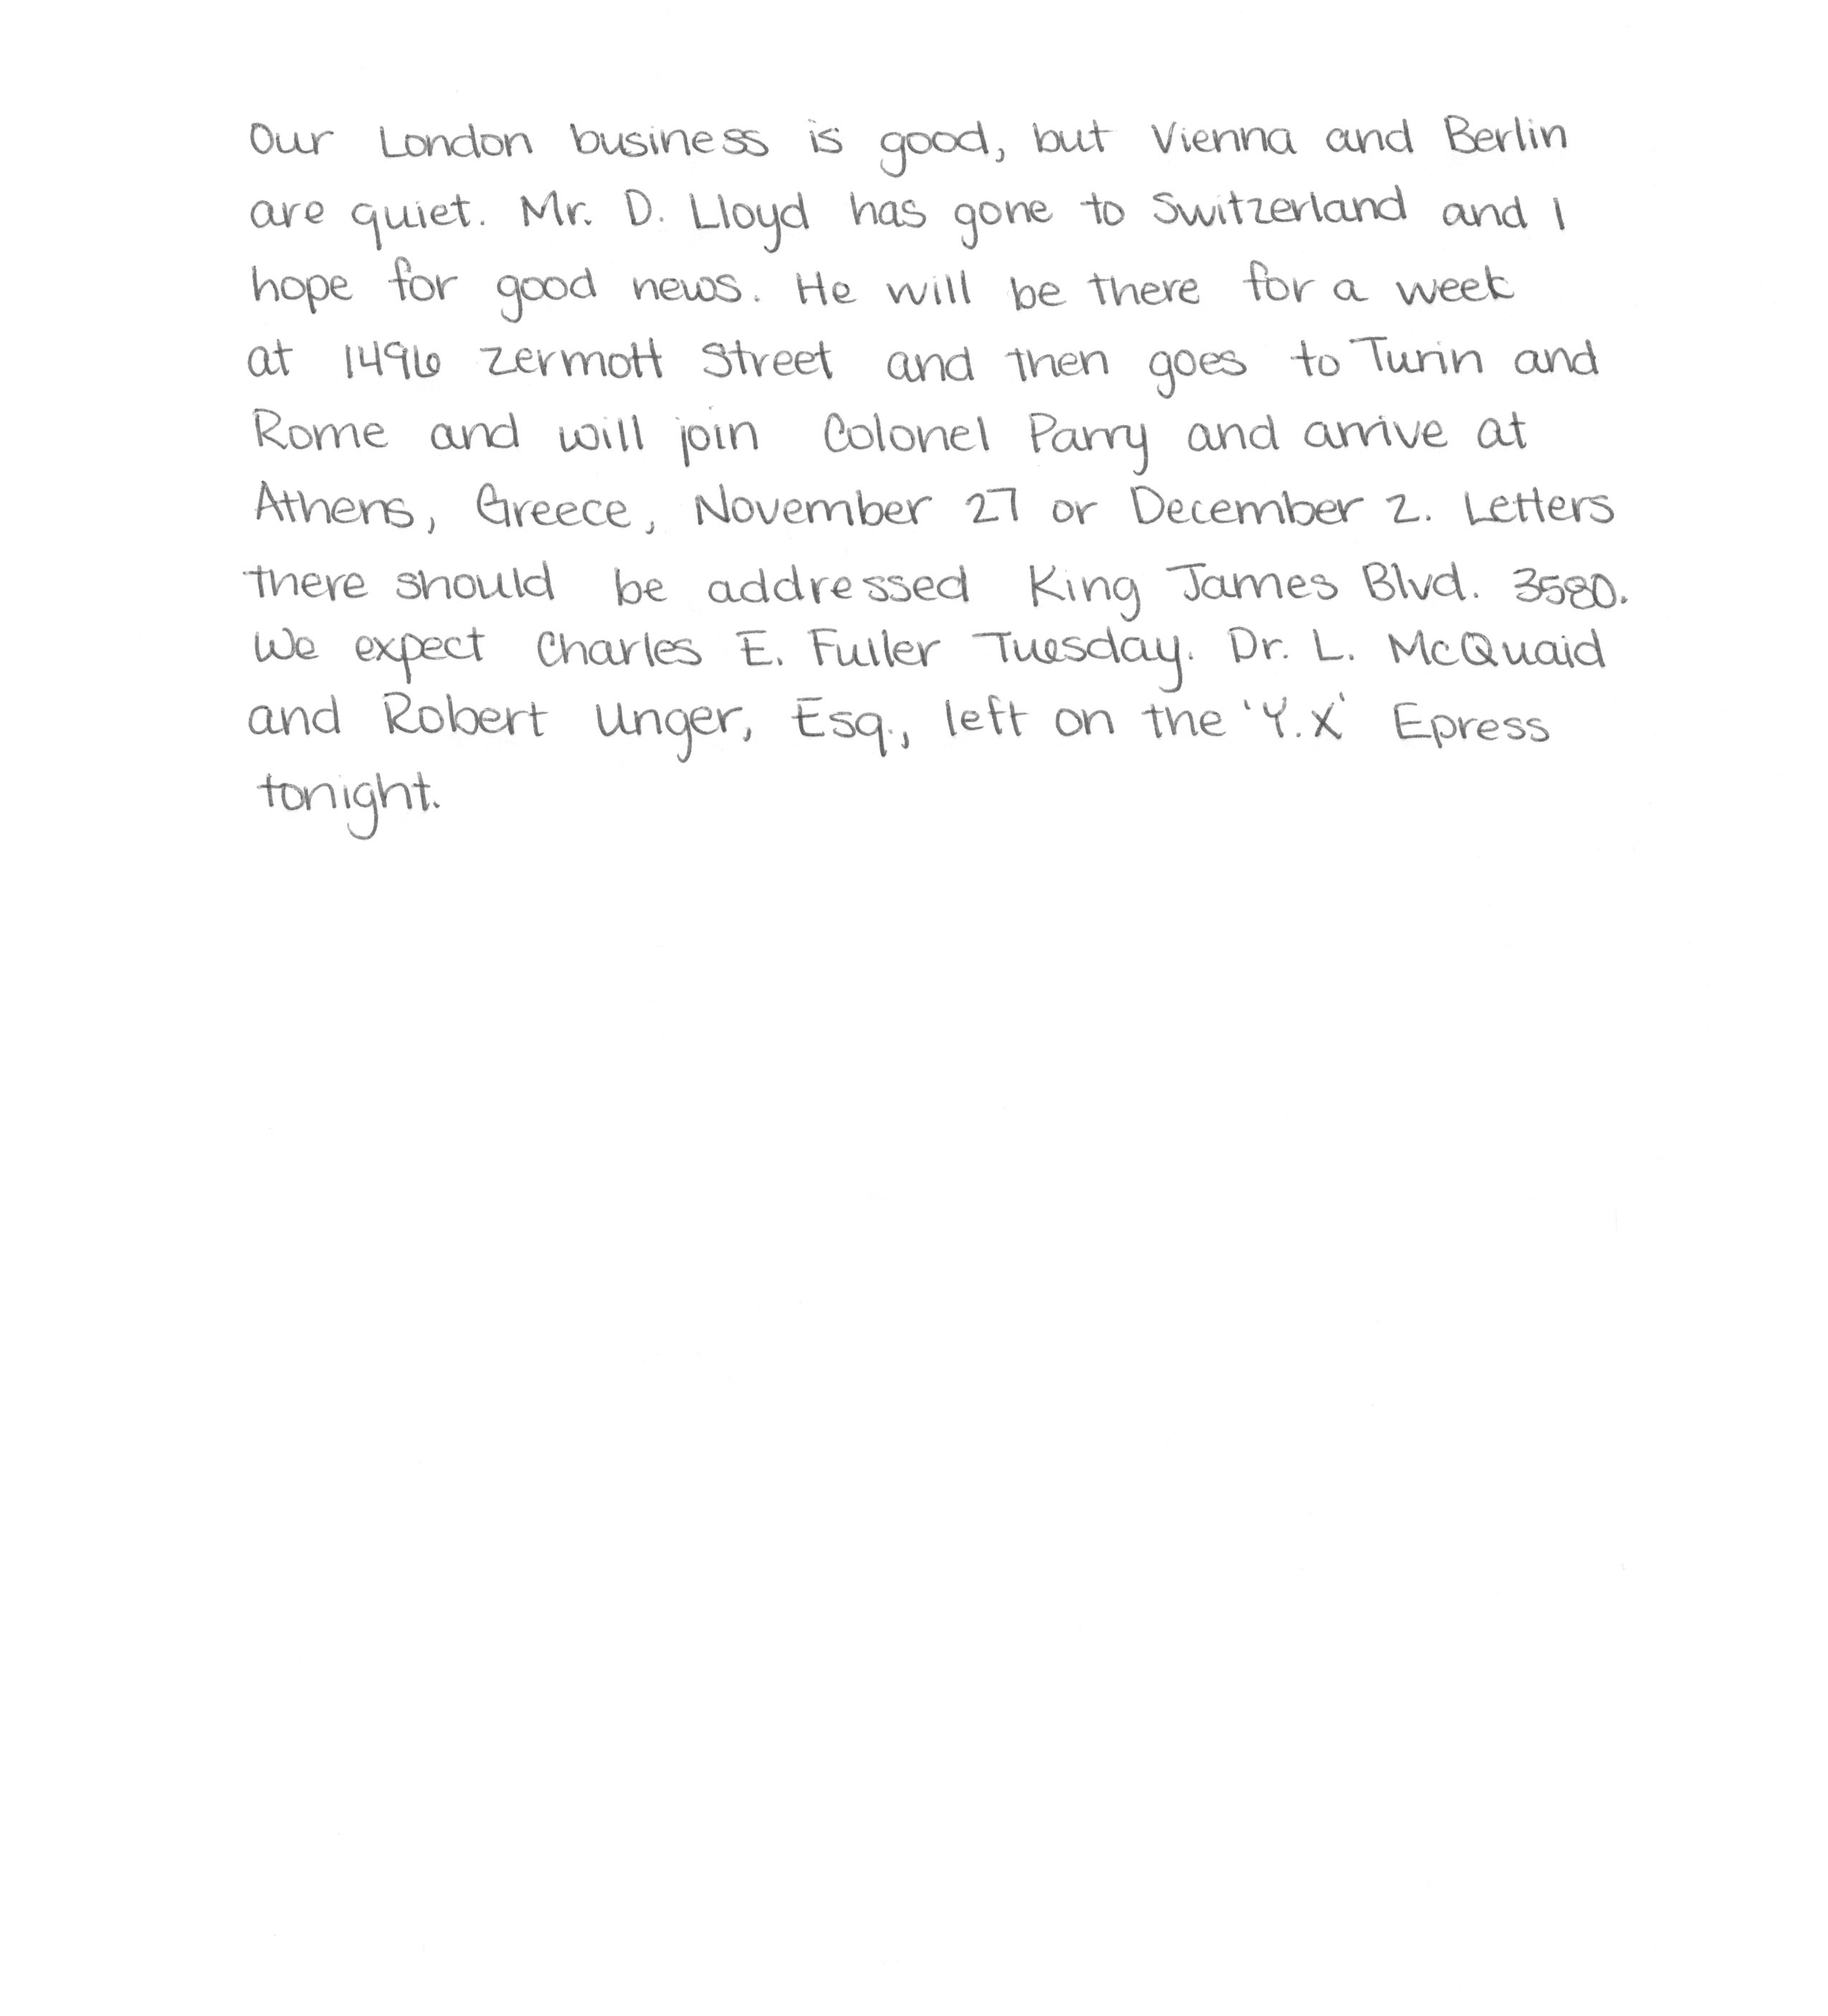 Our London business is good, but Vienna and Berlin
are quiet. Mr. D. Lloyd has gone to Switzerland and I
hope for good news. He will be there for a week
at 1496 Zermott Street and then goes to Turin and
Rome and will join Colonel Parry and arrive at
Athens, Greece, November 27 or December 2. Letters
there should be addressed King James Blvd. 3580.
We expect Charles E. Fuller Tuesday. Dr. L. McQuaid
and Robert Unger, Esq., left on the 'Y.X' Epress
tonight.